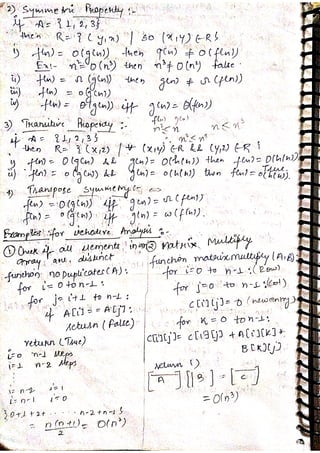 2) Symmetric Property :-
if A = {1, 2, 3}
then R = { (y, x) | so (x, y) ∈ R}
i) f(n) = O(g(n)) then g(n) ≠ O(f(n))
Ex:- n² = O(n³) then n³ ≠ O(n²) false.
ii) f(n) = Ω(g(n)) then g(n) ≠ Ω(f(n))
iii) f(n) = o(g(n))
iv) f(n) = θ(g(n)) iff g(n) = θ(f(n))
3) Transitive Property :-
if A = {1, 2, 3}
then R = { (x, z) | (x, y) ∈ R && (y, z) ∈ R }
i) f(n) = O(g(n)) && g(n) = O(h(n)) then f(n) = O(h(n))
ii) f(n) = o(g(n)) && g(n) = o(h(n)) then f(n) = o(h(n)).
4) Transpose Symmetry :-
f(n) = O(g(n)) iff g(n) = Ω(f(n))
f(n) = o(g(n)) iff g(n) = ω(f(n)).
Examples for Analysis :-
① Check if all elements in
array are distinct
function noDuplicates(A):
for i = 0 to n-1:
for j = i+1 to n-1:
if A[i] == A[j]:
return (False)
return (True)
i=0 n-1 steps
i=1 n-2 steps
i=n-2 i=1
i=n-1 i=0
{0+1+2+ ..... n-2+n-1}
= n(n+1)/2 = O(n²)
② Matrix Multiply
function matrixmultiply(A, B):
for i=0 to n-1: (Row)
for j=0 to n-1: (col)
C[i][j] = 0 (new entry)
for K = 0 to n-1:
C[i][j] = C[i][j] + A[i][K] *
B[K][j]
return ()
[A] [B] = [C]
= O(n³)